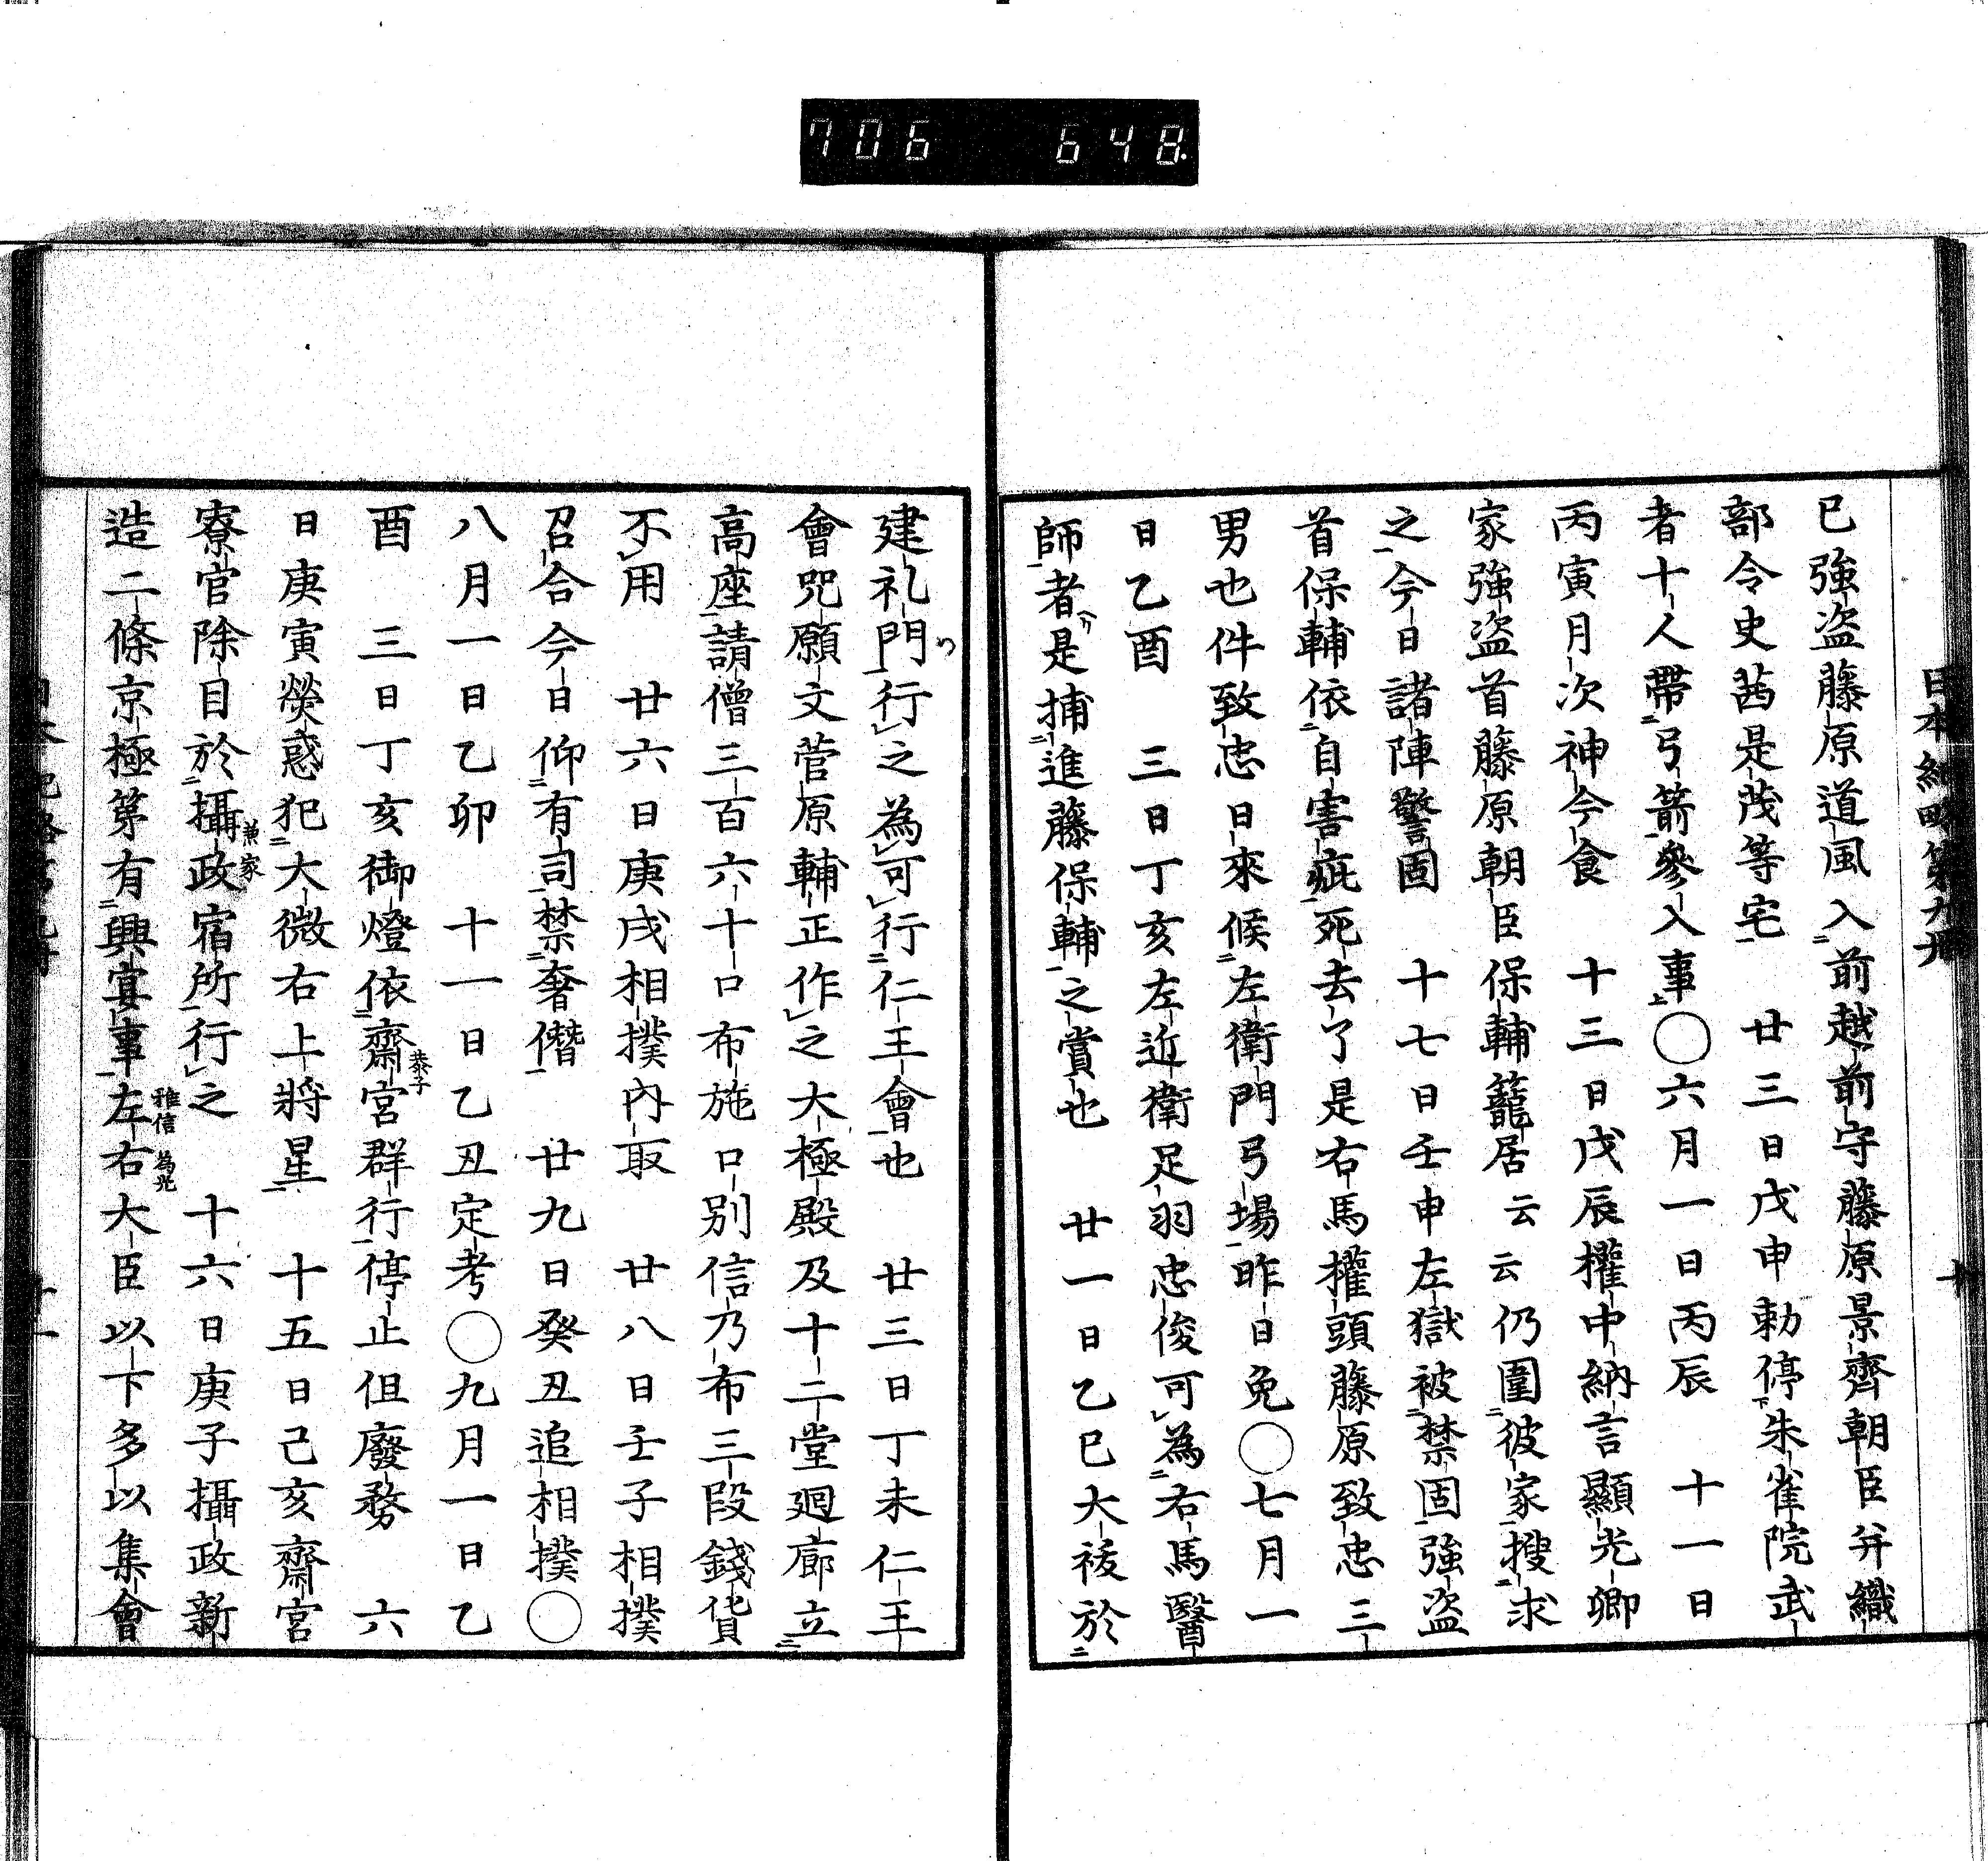 706 648.
日本紀略第九册
十
巳強盜藤原道風入前越前守藤原景齊朝臣并織
部令史茜是茂等宅 廿三日戊申勅停朱雀院武
者十人帶弓箭參入事〇六月一日丙辰 十一日
丙寅月次神今食 十三日戊辰權中納言顯光卿
家強盜首藤原朝臣保輔籠居云云仍圍彼家搜求
之今日諸陣警固 十七日壬申左獄被禁固強盜
首保輔依自害疵死去了是右馬權頭藤原致忠三
男也件致忠日來候左衛門弓場昨日免〇七月一
日乙酉 三日丁亥左近衛足羽忠俊可為右馬醫
師者是捕進藤保輔之賞也 廿一日乙巳大祓於
建礼門行之為可行仁王會也 廿三日丁未仁王
會咒願文菅原輔正作之大極殿及十二堂廻廊立
高座請僧三百六十口布施口別信乃布三段錢貨
不用 廿六日庚戌相撲內取 廿八日壬子相撲
召合今日仰有司禁奢僭 廿九日癸丑追相撲〇
八月一日乙卯 十一日乙丑定考〇九月一日乙
酉 三日丁亥御燈依齋宮恭子群行停止但廢務 六
日庚寅熒惑犯大微右上將星 十五日己亥齋宮
寮官除目於攝政兼家宿所行之 十六日庚子攝政新
造二條京極第有興宴事左雅信右為光大臣以下多以集會